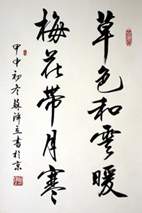 草色和雲暖
梅花帶月寒
甲申初冬蘇澤立書於京